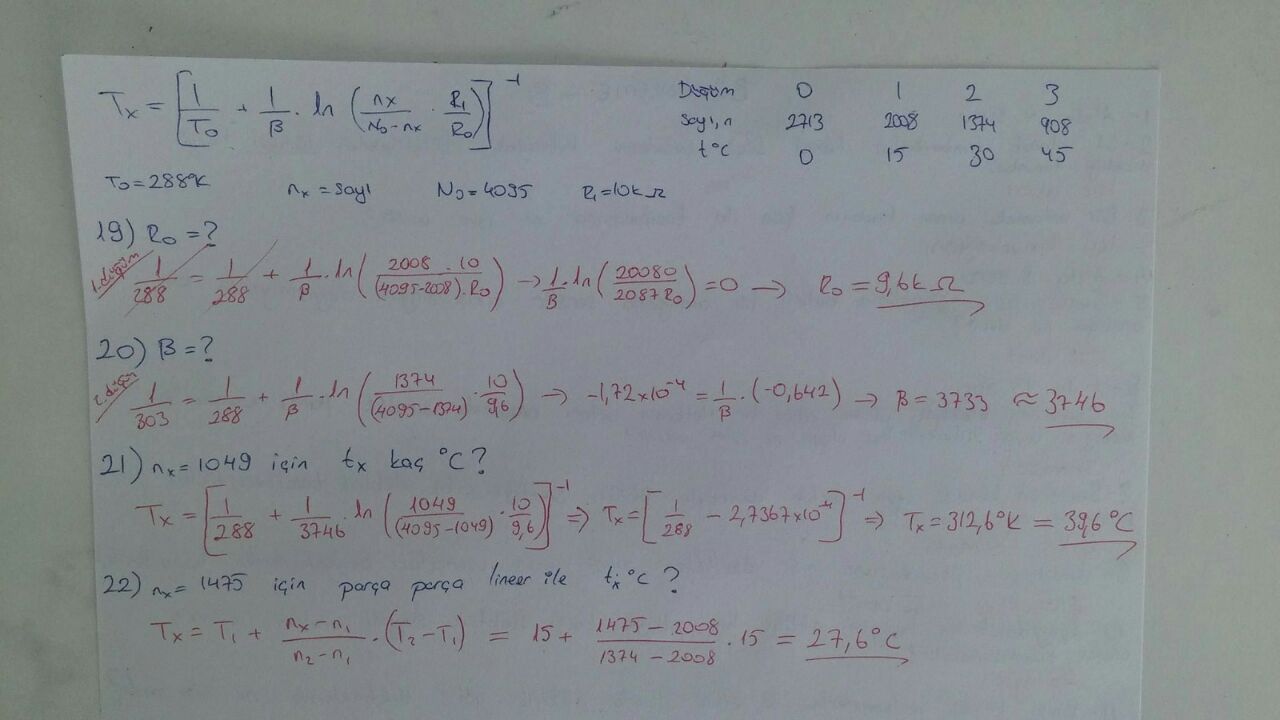 Tx = [1/T0 + 1/β . ln (nx/(N0-nx) . R1/R0)]^-1
Düğüm 0 1 2 3
sayı,n 2713 2008 1374 908
t°C 0 15 30 45
T0=288°K nx=sayı N0=4095 R1=10kΩ
19) R0=?
1.düğüm 1/288 = 1/288 + 1/β . ln (2008 . 10/((4095-2008).R0)) → 1/β . ln (20080/2087R0) = 0 → R0 = 9,6kΩ
20) β=?
2.düğüm 1/303 = 1/288 + 1/β . ln (1374/(4095-1374) . 10/9,6) → -1,72x10^-4 = 1/β . (-0,642) → β = 3733 ≈ 3746
21) nx=1049 için tx kaç °C?
Tx = [1/288 + 1/3746 . ln (1049/(4095-1049) . 10/9,6)]^-1 ⇒ Tx = [1/288 - 2,7367x10^-4]^-1 ⇒ Tx = 312,6°K = 39,6°C
22) nx= 1475 için parça parça lineer ile tx °C ?
Tx = T1 + (nx-n1)/(n2-n1) . (T2-T1) = 15 + (1475-2008)/(1374-2008) . 15 = 27,6°C